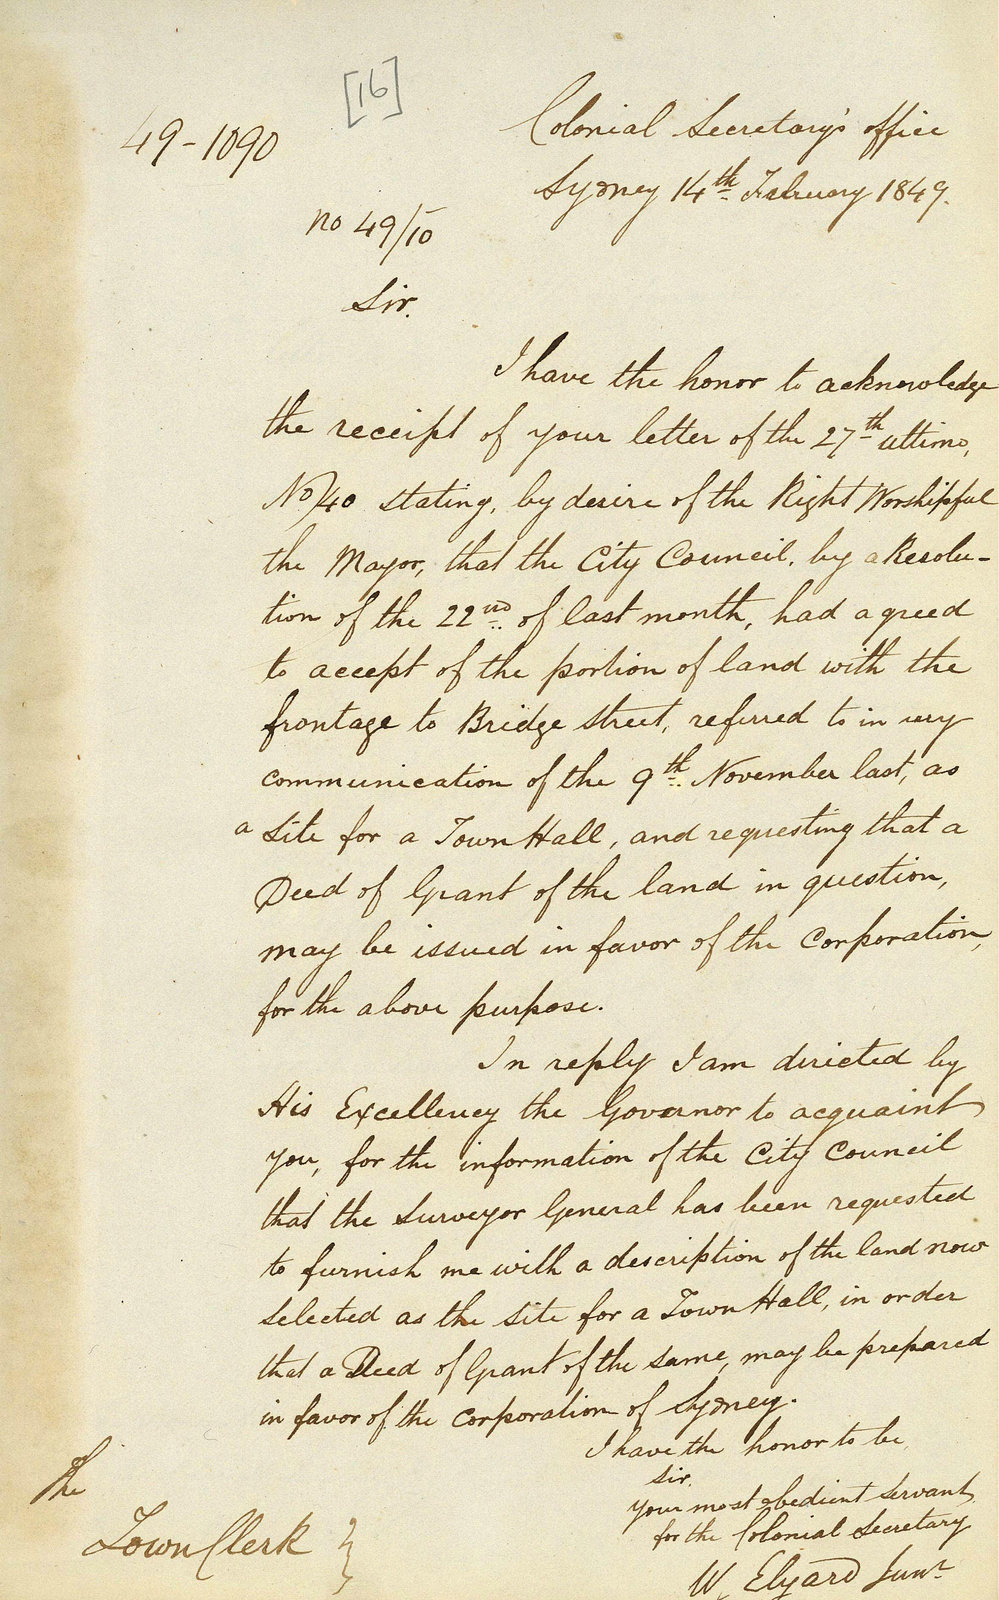 [16]
49-1090
Colonial Secretary's office
Sydney 14th February 1849.
no 49/10
Sir.
I have the honor to acknowledge
the receipt of your letter of the 27th ultimo,
No/40 stating, by desire of the Right Worshipful
the Mayor, that the City Council, by a Resolu-
tion of the 22nd of last month, had agreed
to accept of the portion of land with the
frontage to Bridge Street, referred to in my
communication of the 9th November last, as
a site for a Town Hall, and requesting that a
Deed of Grant of the land in question,
may be issued in favor of the Corporation,
for the above purpose.
In reply I am directed by
His Excellency the Governor to acquaint
you, for the information of the City Council
that the Surveyor General has been requested
to furnish me with a description of the land now
selected as the site for a Town Hall, in order
that a Deed of Grant of the same, may be prepared
in favor of the corporation of Sydney.
I have the honor to be
Sir,
your most obedient servant
for the Colonial Secretary
W. Elyard Junr
The
Town Clerk }